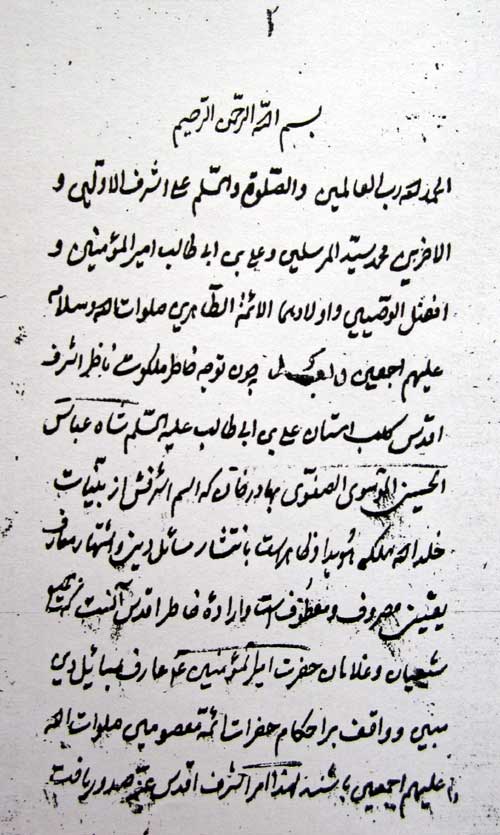 ۲
بسم الله الرحمن الرحیم
الحمد لله رب العالمین والصلوة والسلم علی اشرف الاولین و
الاخرین محمد سید المرسلین و علی بن ابی طالب امیر المؤمنین و
افضل الوصیین و اولادهما الائمة الطاهرین صلوات الله وسلامه
علیهم اجمعین چون توجه خاطر ملکوت ناظر اشرف
اقدس کلب استان علی بن ابی طالب علیه السلم شاه عباس
الحسینی الموسوی الصفوی بهادرخان که اسم اشرفش از بینات
خلد الله ملکه هویدا و ظاهرست بانتشار مسائل دین و اشتهار معارف
یقینی مصروف و معطوف است و اراده خاطر اقدس آنست که
شیعیان و غلامان حضرت امیر المؤمنین ع عارف بمسائل دین
مبین و واقف بر احکام حضرات ائمه معصومین صلوات الله
علیهم اجمعین باشند لهذا امر اشرف اقدس عز صدور یافت